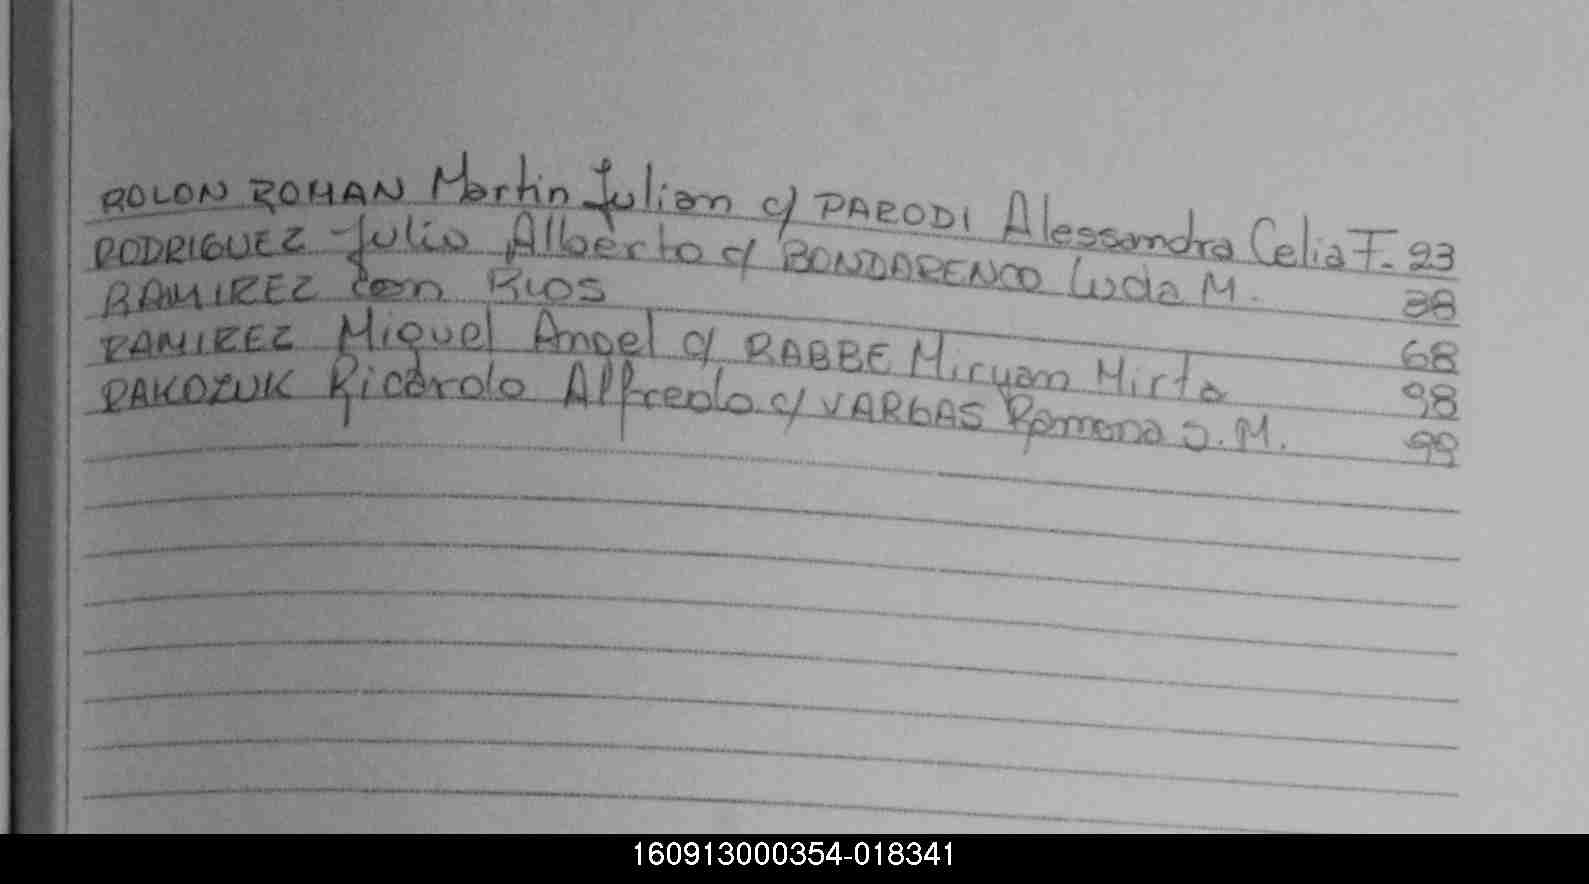 ROLON ROMAN Martin Julian c/ PARODI Alessandra Celia F. 23
RODRIGUEZ Julio Alberto c/ BONDARENCO Luda M. 38
RAMIREZ con RIOS 68
RAMIREZ Miguel Angel c/ RABBE Miryam Mirta 98
RAKOZUK Ricardo Alfredo c/ VARGAS Ramona S. M. 99
160913000354-018341